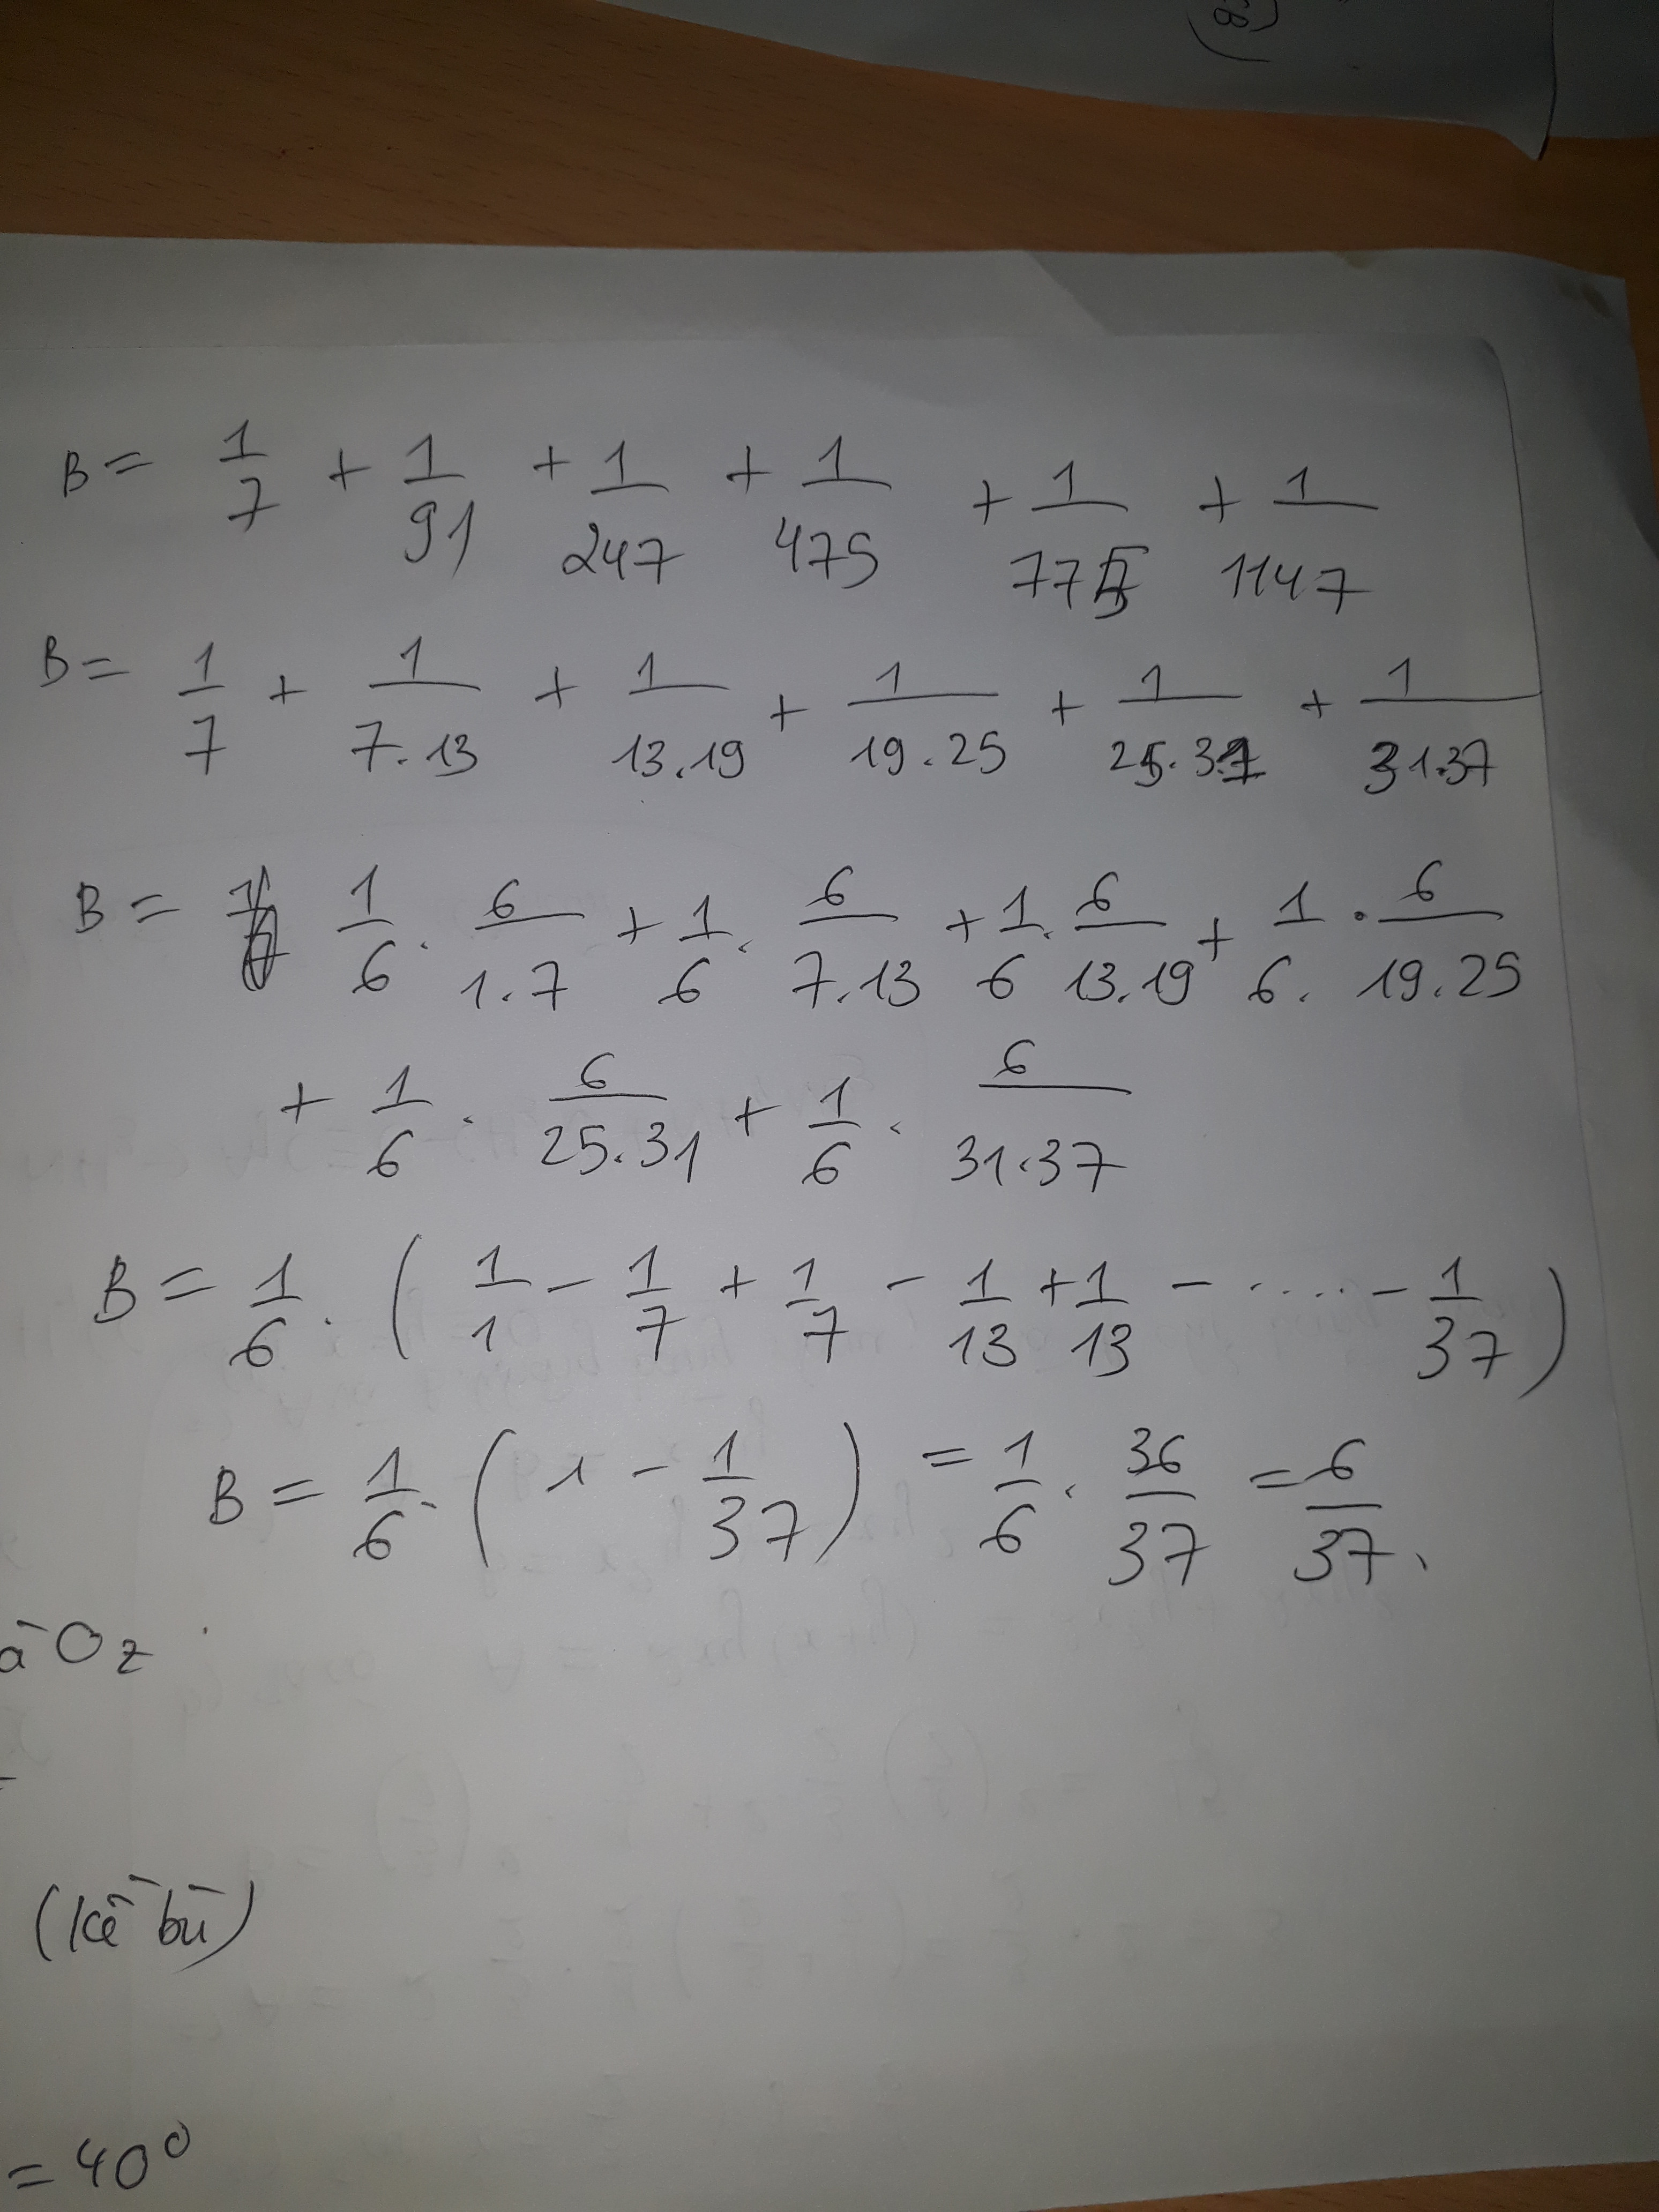 B = 1/7 + 1/91 + 1/247 + 1/475 + 1/775 + 1/1147
B = 1/7 + 1/7.13 + 1/13.19 + 1/19.25 + 1/25.31 + 1/31.37
B = 1/6 . 6/1.7 + 1/6 . 6/7.13 + 1/6 . 6/13.19 + 1/6 . 6/19.25
+ 1/6 . 6/25.31 + 1/6 . 6/31.37
B = 1/6 . ( 1/1 - 1/7 + 1/7 - 1/13 + 1/13 - ..... - 1/37 )
B = 1/6 . ( 1 - 1/37 ) = 1/6 . 36/37 = 6/37 .
à Oz
(kề bù)
= 40°